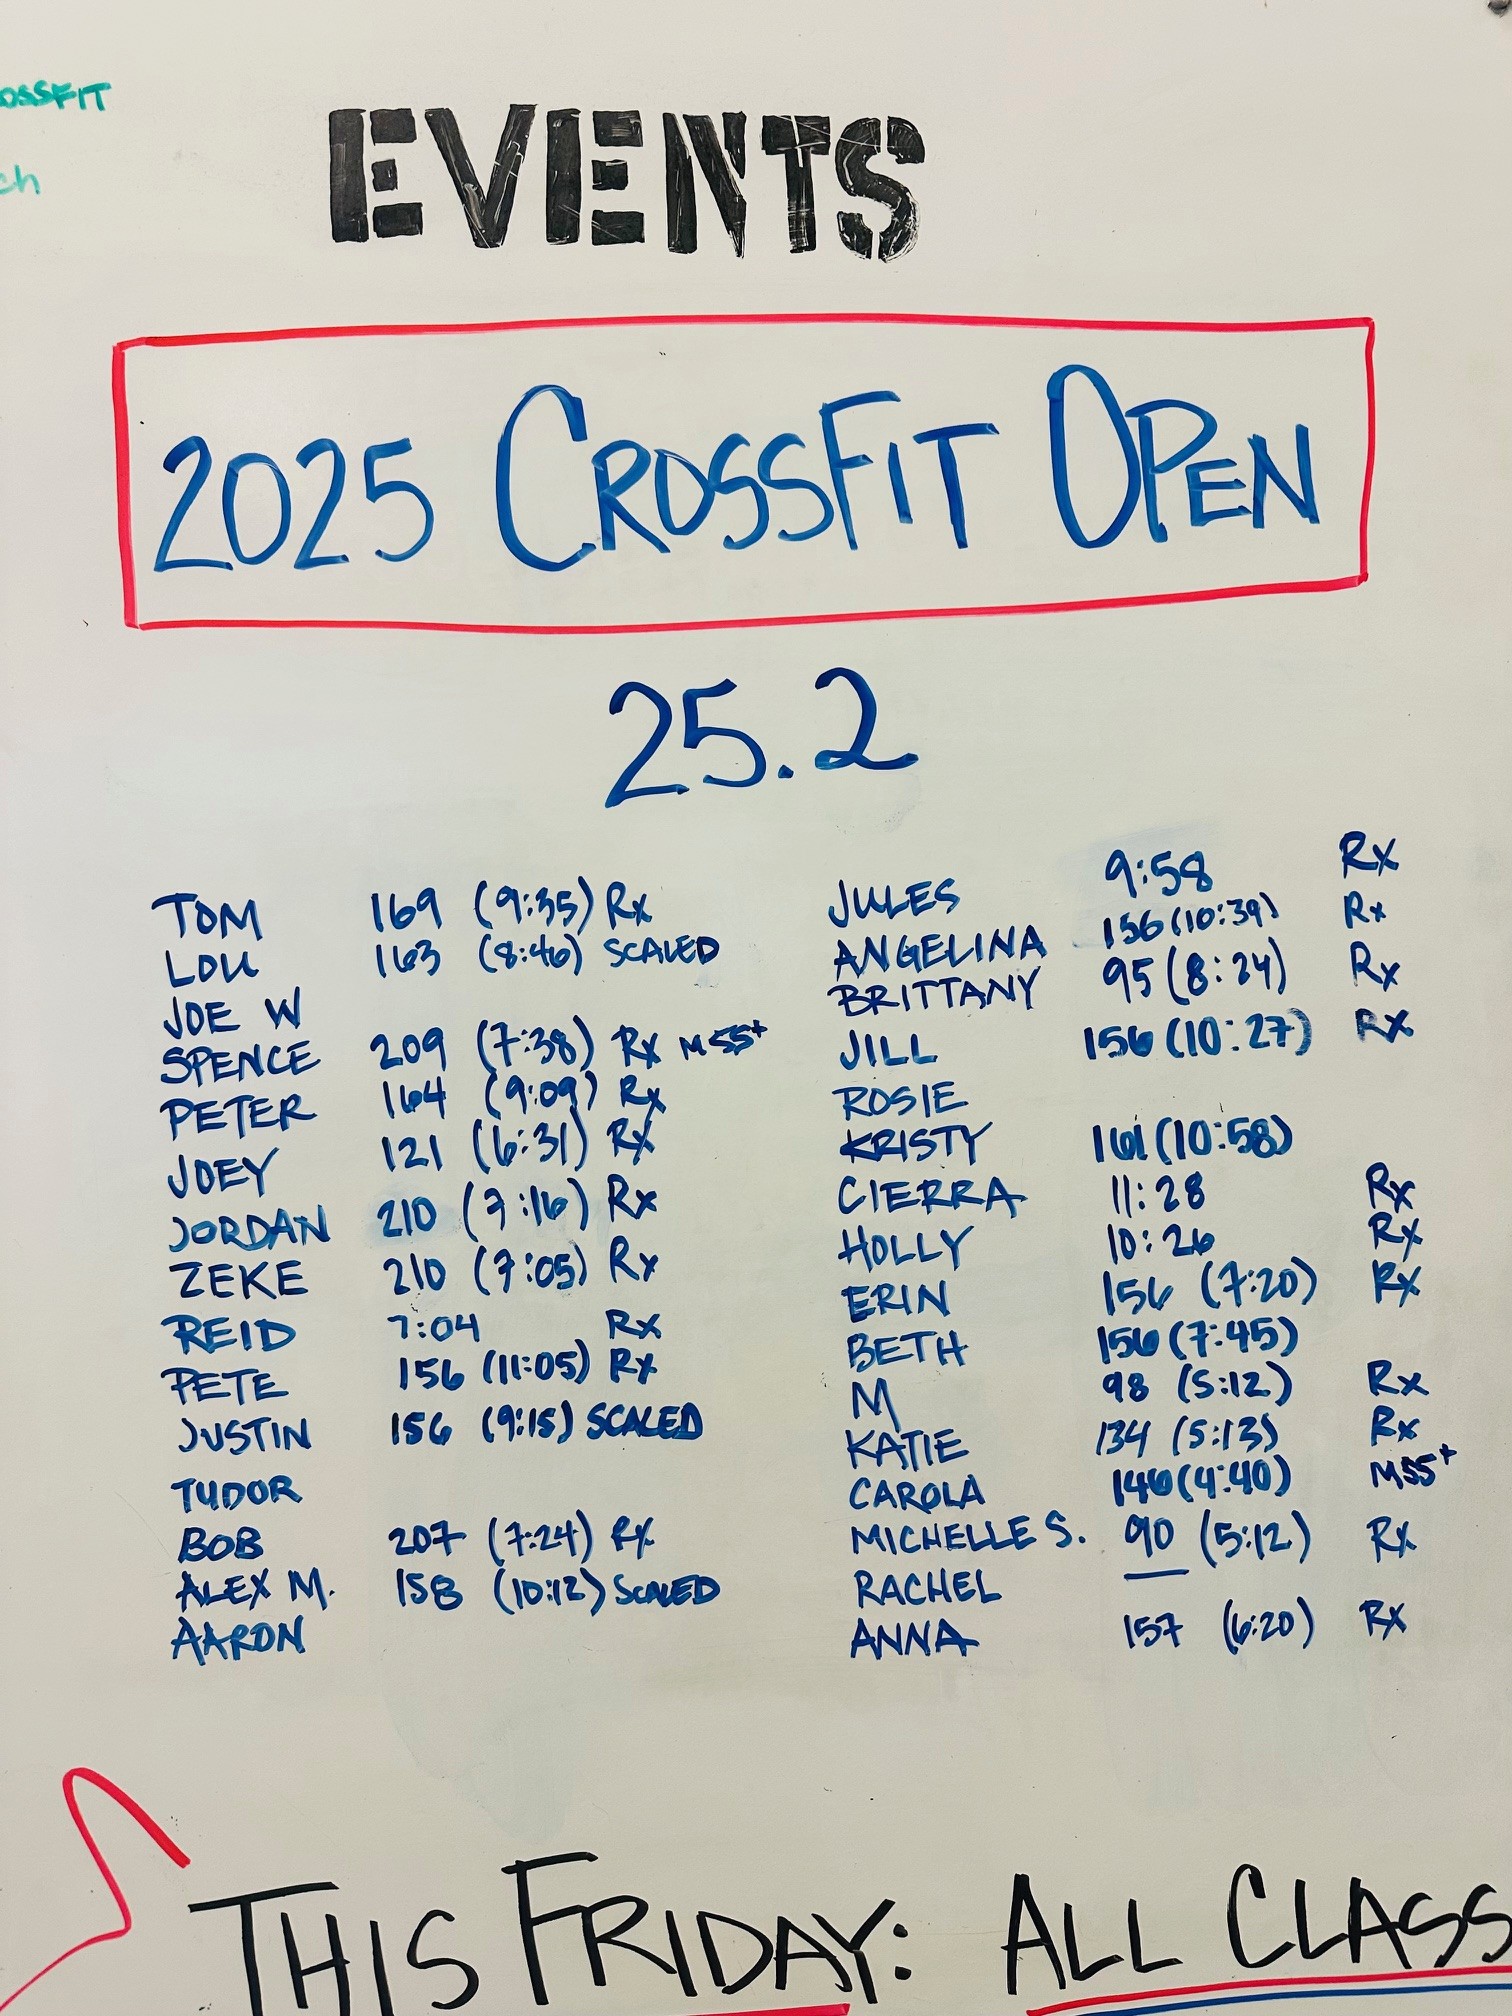 OSSFIT
ch
EVENTS
2025 CROSSFIT OPEN
25.2
TOM 169 (9:35) Rx
LOU 163 (8:46) SCALED
JOE W
SPENCE 209 (7:38) Rx M55+
PETER 164 (9:09) Rx
JOEY 121 (6:31) Rx
JORDAN 210 (7:16) Rx
ZEKE 210 (7:05) Rx
REID 7:04 Rx
PETE 156 (11:05) Rx
JUSTIN 156 (9:15) SCALED
TUDOR
BOB 207 (7:24) Rx
ALEX M. 158 (10:12) SCALED
AARON
JULES 9:58 Rx
ANGELINA 156 (10:39) Rx
BRITTANY 95 (8:24) Rx
JILL 156 (10:27) Rx
ROSIE
KRISTY 161 (10:58)
CIERRA 11:28 Rx
HOLLY 10:26 Rx
ERIN 156 (7:20) Rx
BETH 156 (7:45)
M 98 (5:12) Rx
KATIE 134 (5:13) Rx
CAROLA 146 (4:40) M55+
MICHELLE S. 90 (5:12) Rx
RACHEL
ANNA 157 (6:20) Rx
THIS FRIDAY: ALL CLASS